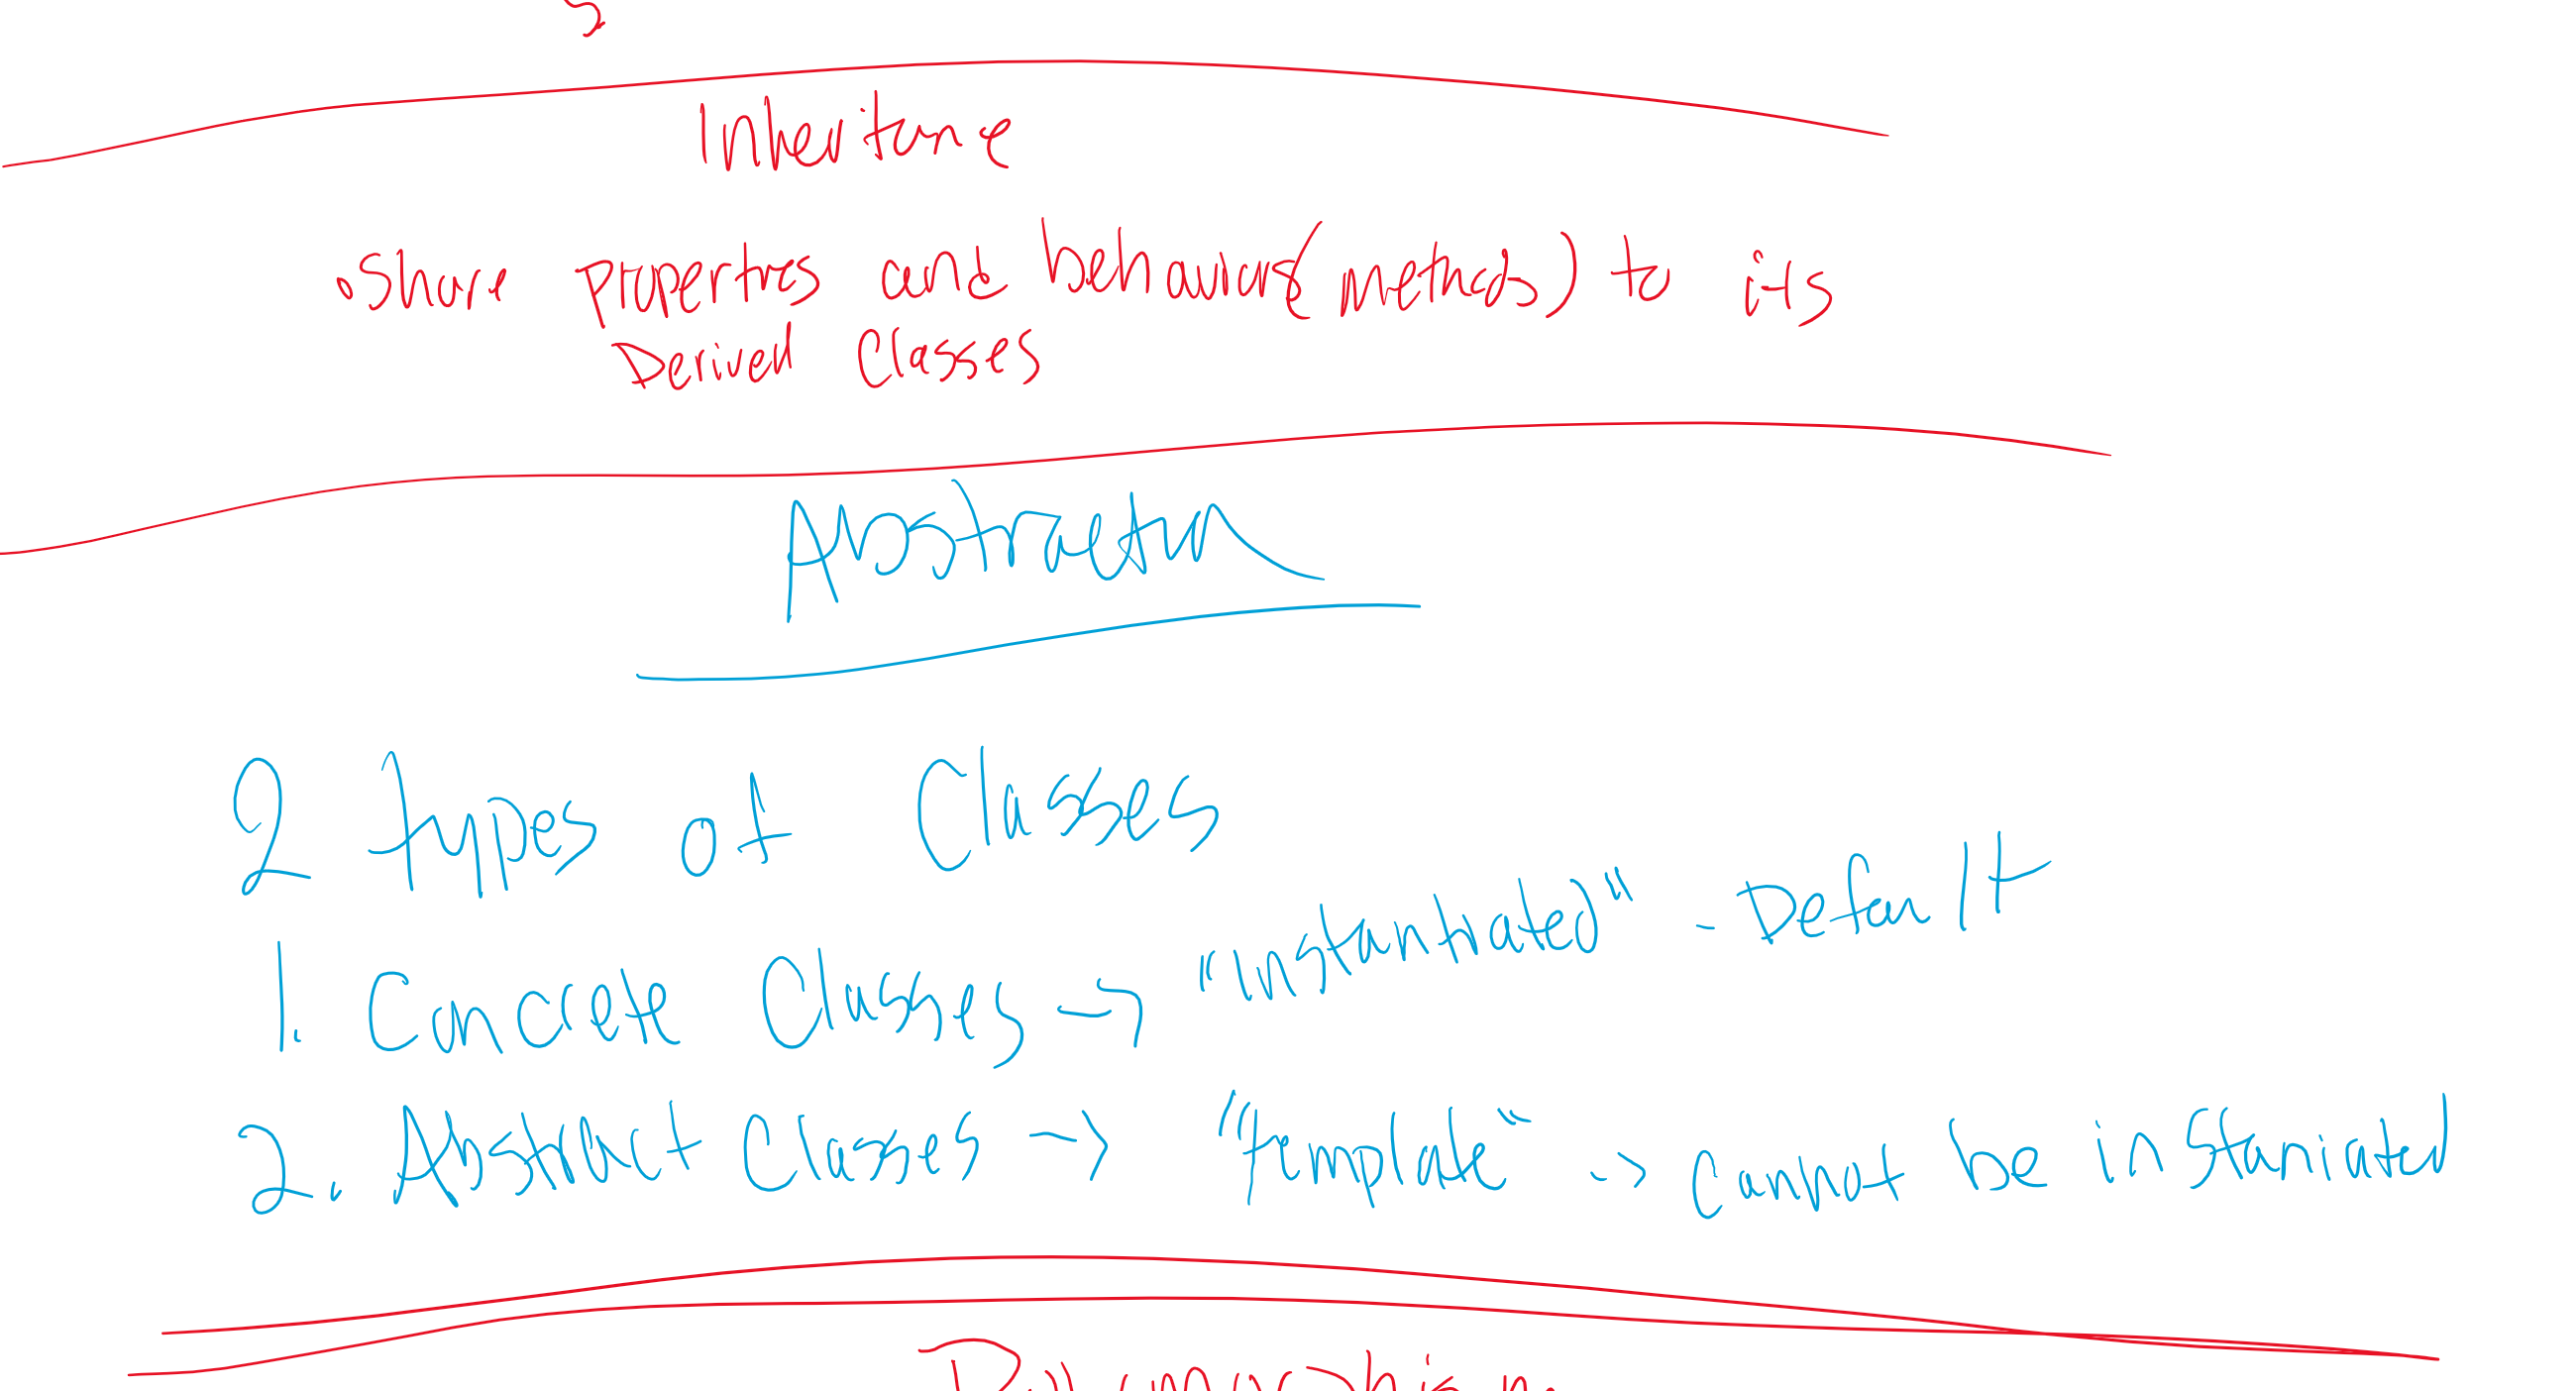 Inheritance
•Share properties and behaviors(methods) to its
Derived Classes
Abstraction
2 types of Classes
1. Concrete Classes → "instantiated" - Default
2. Abstract Classes → "template" -> cannot be instaniated
Polymorphism